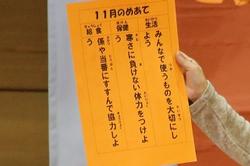 11月のめあて
生活
みんなで使うものを大切にし
よう
保健
寒さに負けない体力をつけよ
う
給食
係や当番にすすんで協力しよ
う